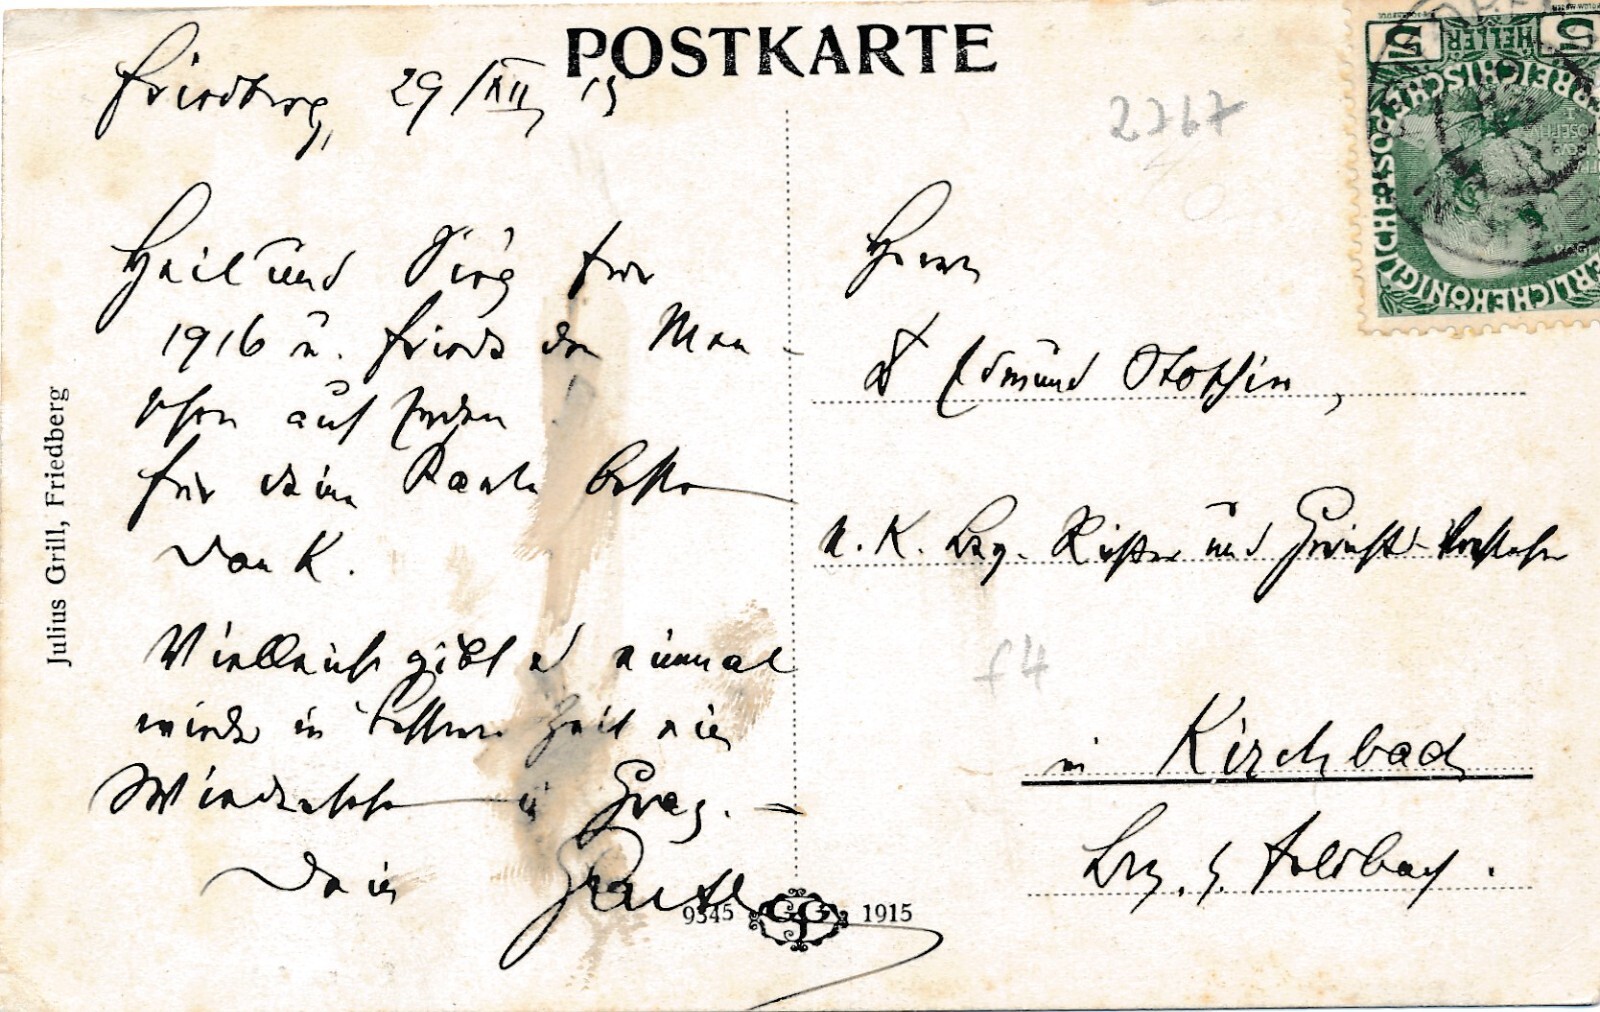 POSTKARTE
Friedberg, 29/XII 15
2267
Heil und Sieg für
1916 u. Friede den Men-
schen auf Erden
für deine Karte besten
Dank.
Vielleicht gibt es einmal
wieder in besserer Zeit ein
Wiedersehen in Graz. –
Dein
Herrn
Dr Edmund
k. k. Bez. Richter und Gerichts-Vorsteher
f4
in Kirchbach
Bez. Feldbach.
Julius Grill, Friedberg
9345 1915
5 HELLER 5
KAISERLICHEKÖNIGLICHE ÖSTERREICHISCHE POST